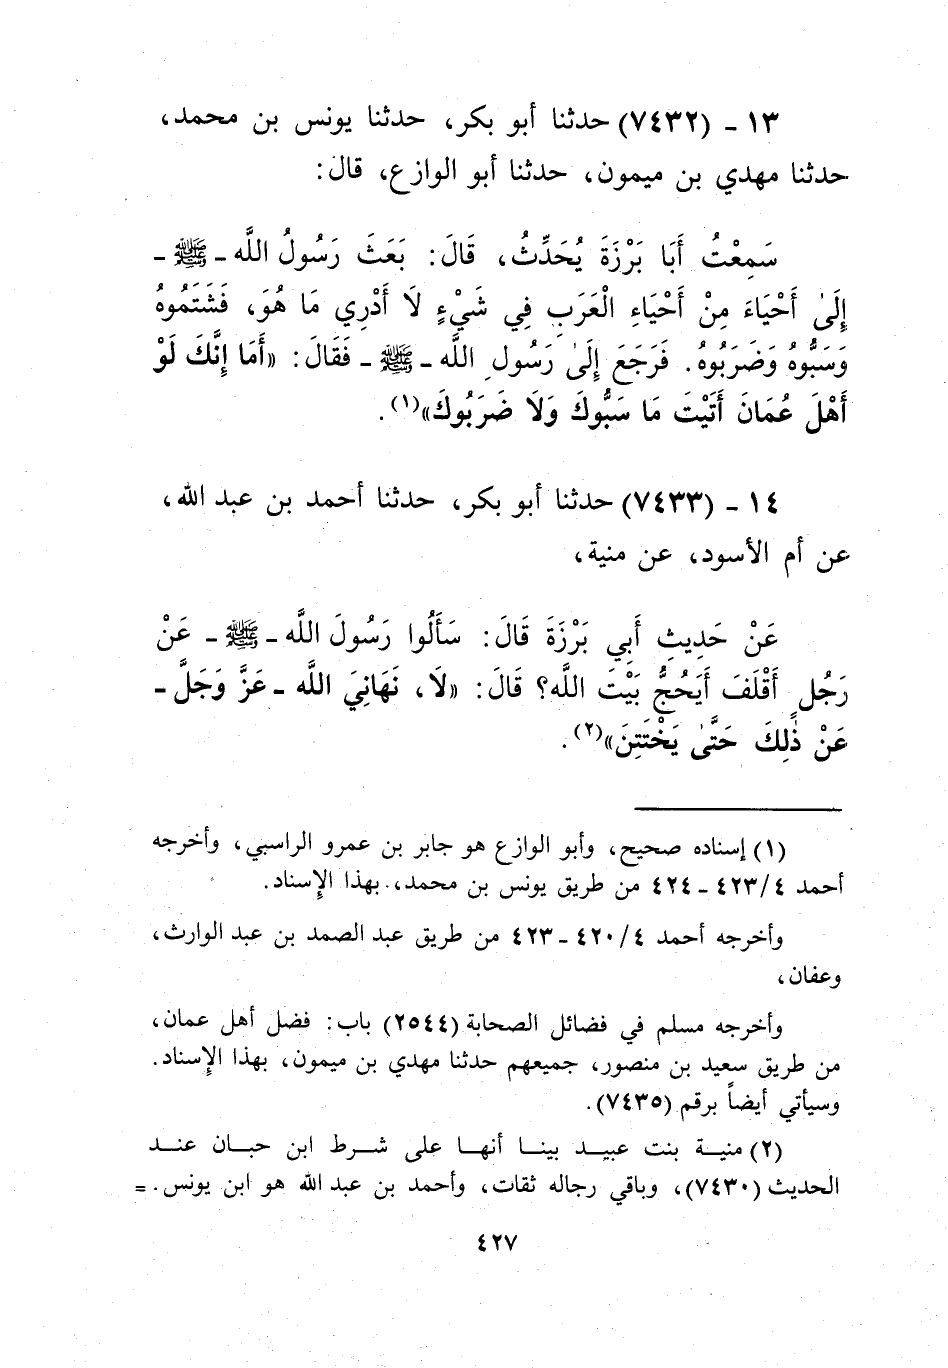 ١٣ - (٧٤٣٢) حدثنا أبو بكر، حدثنا يونس بن محمد،
حدثنا مهدي بن ميمون، حدثنا أبو الوازع، قال:
سَمِعْتُ أَبَا بَرْزَةَ يُحَدِّثُ، قَالَ: بَعَثَ رَسُولُ اللَّه - ﷺ -
إِلَىٰ أَحْيَاءَ مِنْ أَحْيَاءِ الْعَرَبِ فِي شَيْءٍ لَا أَدْرِي مَا هُوَ، فَشَتَمُوهُ
وَسَبُّوهُ وَضَرَبُوهُ. فَرَجَعَ إِلَىٰ رَسُولِ اللَّه - ﷺ - فَقَالَ: «أَمَا إِنَّكَ لَوْ
أَهْلَ عُمَانَ أَتَيْتَ مَا سَبُّوكَ وَلَا ضَرَبُوكَ»(١).
١٤ - (٧٤٣٣) حدثنا أبو بكر، حدثنا أحمد بن عبد الله،
عن أم الأسود، عن منية،
عَنْ حَدِيثِ أَبِي بَرْزَةَ قَالَ: سَأَلُوا رَسُولَ اللَّه - ﷺ - عَنْ
رَجُلٍ أَقْلَفَ أَيَحُجُّ بَيْتَ اللَّه؟ قَالَ: «لَا، نَهَانِيَ اللَّه - عَزَّ وَجَلَّ -
عَنْ ذٰلِكَ حَتَّىٰ يَخْتَتِنَ»(٢).
(١) إسناده صحيح، وأبو الوازع هو جابر بن عمرو الراسبي، وأخرجه
أحمد ٤/ ٤٢٣ - ٤٢٤ من طريق يونس بن محمد، بهذا الإسناد.
وأخرجه أحمد ٤/ ٤٢٠ - ٤٢٣ من طريق عبد الصمد بن عبد الوارث،
وعفان،
وأخرجه مسلم في فضائل الصحابة (٢٥٤٤) باب: فضل أهل عمان،
من طريق سعيد بن منصور، جميعهم حدثنا مهدي بن ميمون، بهذا الإسناد.
وسيأتي أيضاً برقم (٧٤٣٥).
(٢) منية بنت عبيد بينا أنها على شرط ابن حبان عند
الحديث (٧٤٣٠)، وباقي رجاله ثقات، وأحمد بن عبد الله هو ابن يونس. =
٤٢٧